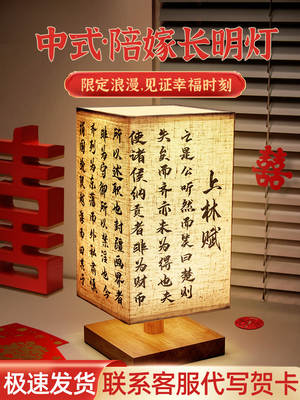 中式·陪嫁长明灯
限定浪漫.见证幸福时刻
上林赋
亡是公听然而笑曰楚则
失矣而齐亦未为得也夫
使诸侯纳贡者非为财币
所以述职也封疆画界者
非为守御所以禁淫也今
囍
极速发货
联系客服代写贺卡